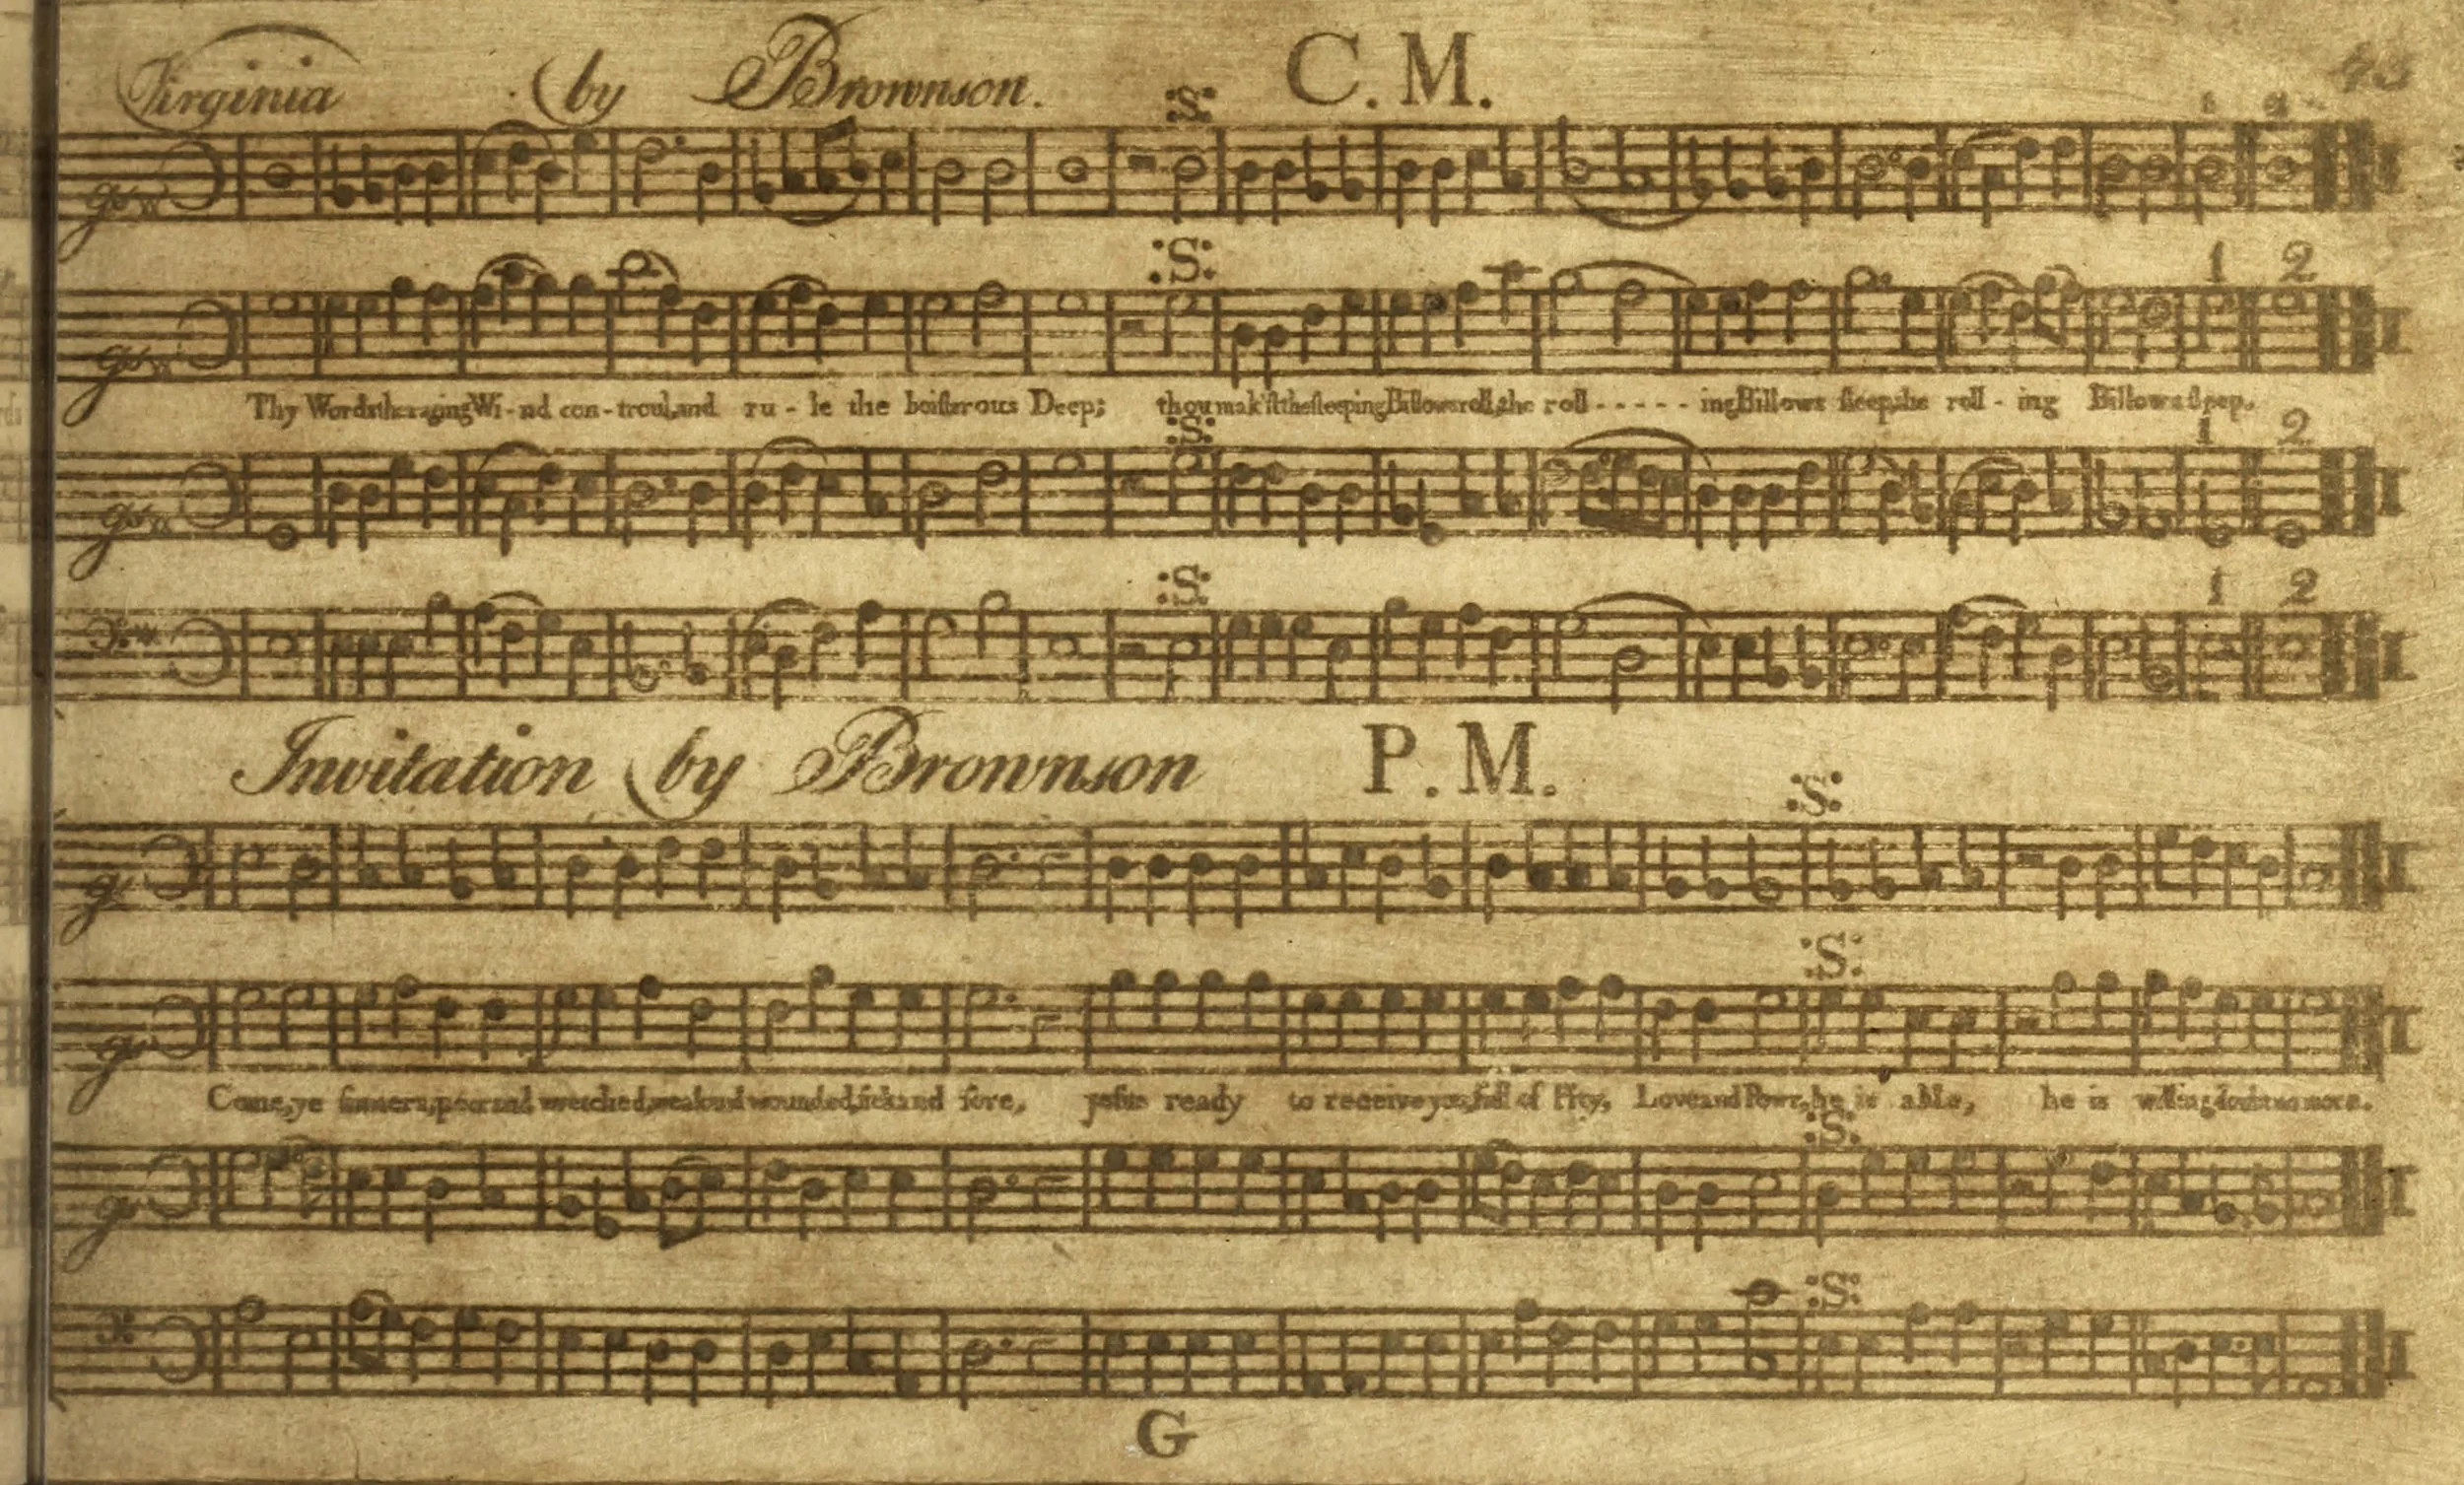 Virginia by Brownson. C. M. 43
:S:
1 2
:S:
Thy Words the raging Wi-nd con-troul, and ru-le the boisterous Deep; thou mak'st the sleeping Billows roll, the roll - - - - - ing Billows sleep, the roll - ing Billows sleep.
:S: 1 2
:S: 1 2
Invitation by Brownson P. M.
:S:
:S:
Come, ye sinners, poor and wretched, weak and wounded, sick and sore, Jesus ready to receive you, full of Pity, Love and Powr, he is able, he is willing doubt no more.
:S:
:S:
G